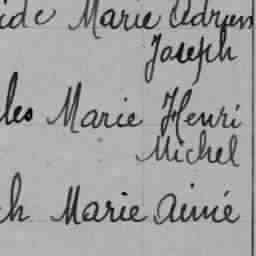 ide Marie Adrien
Joseph
les Marie Henri
Michel
h Marie Aimé